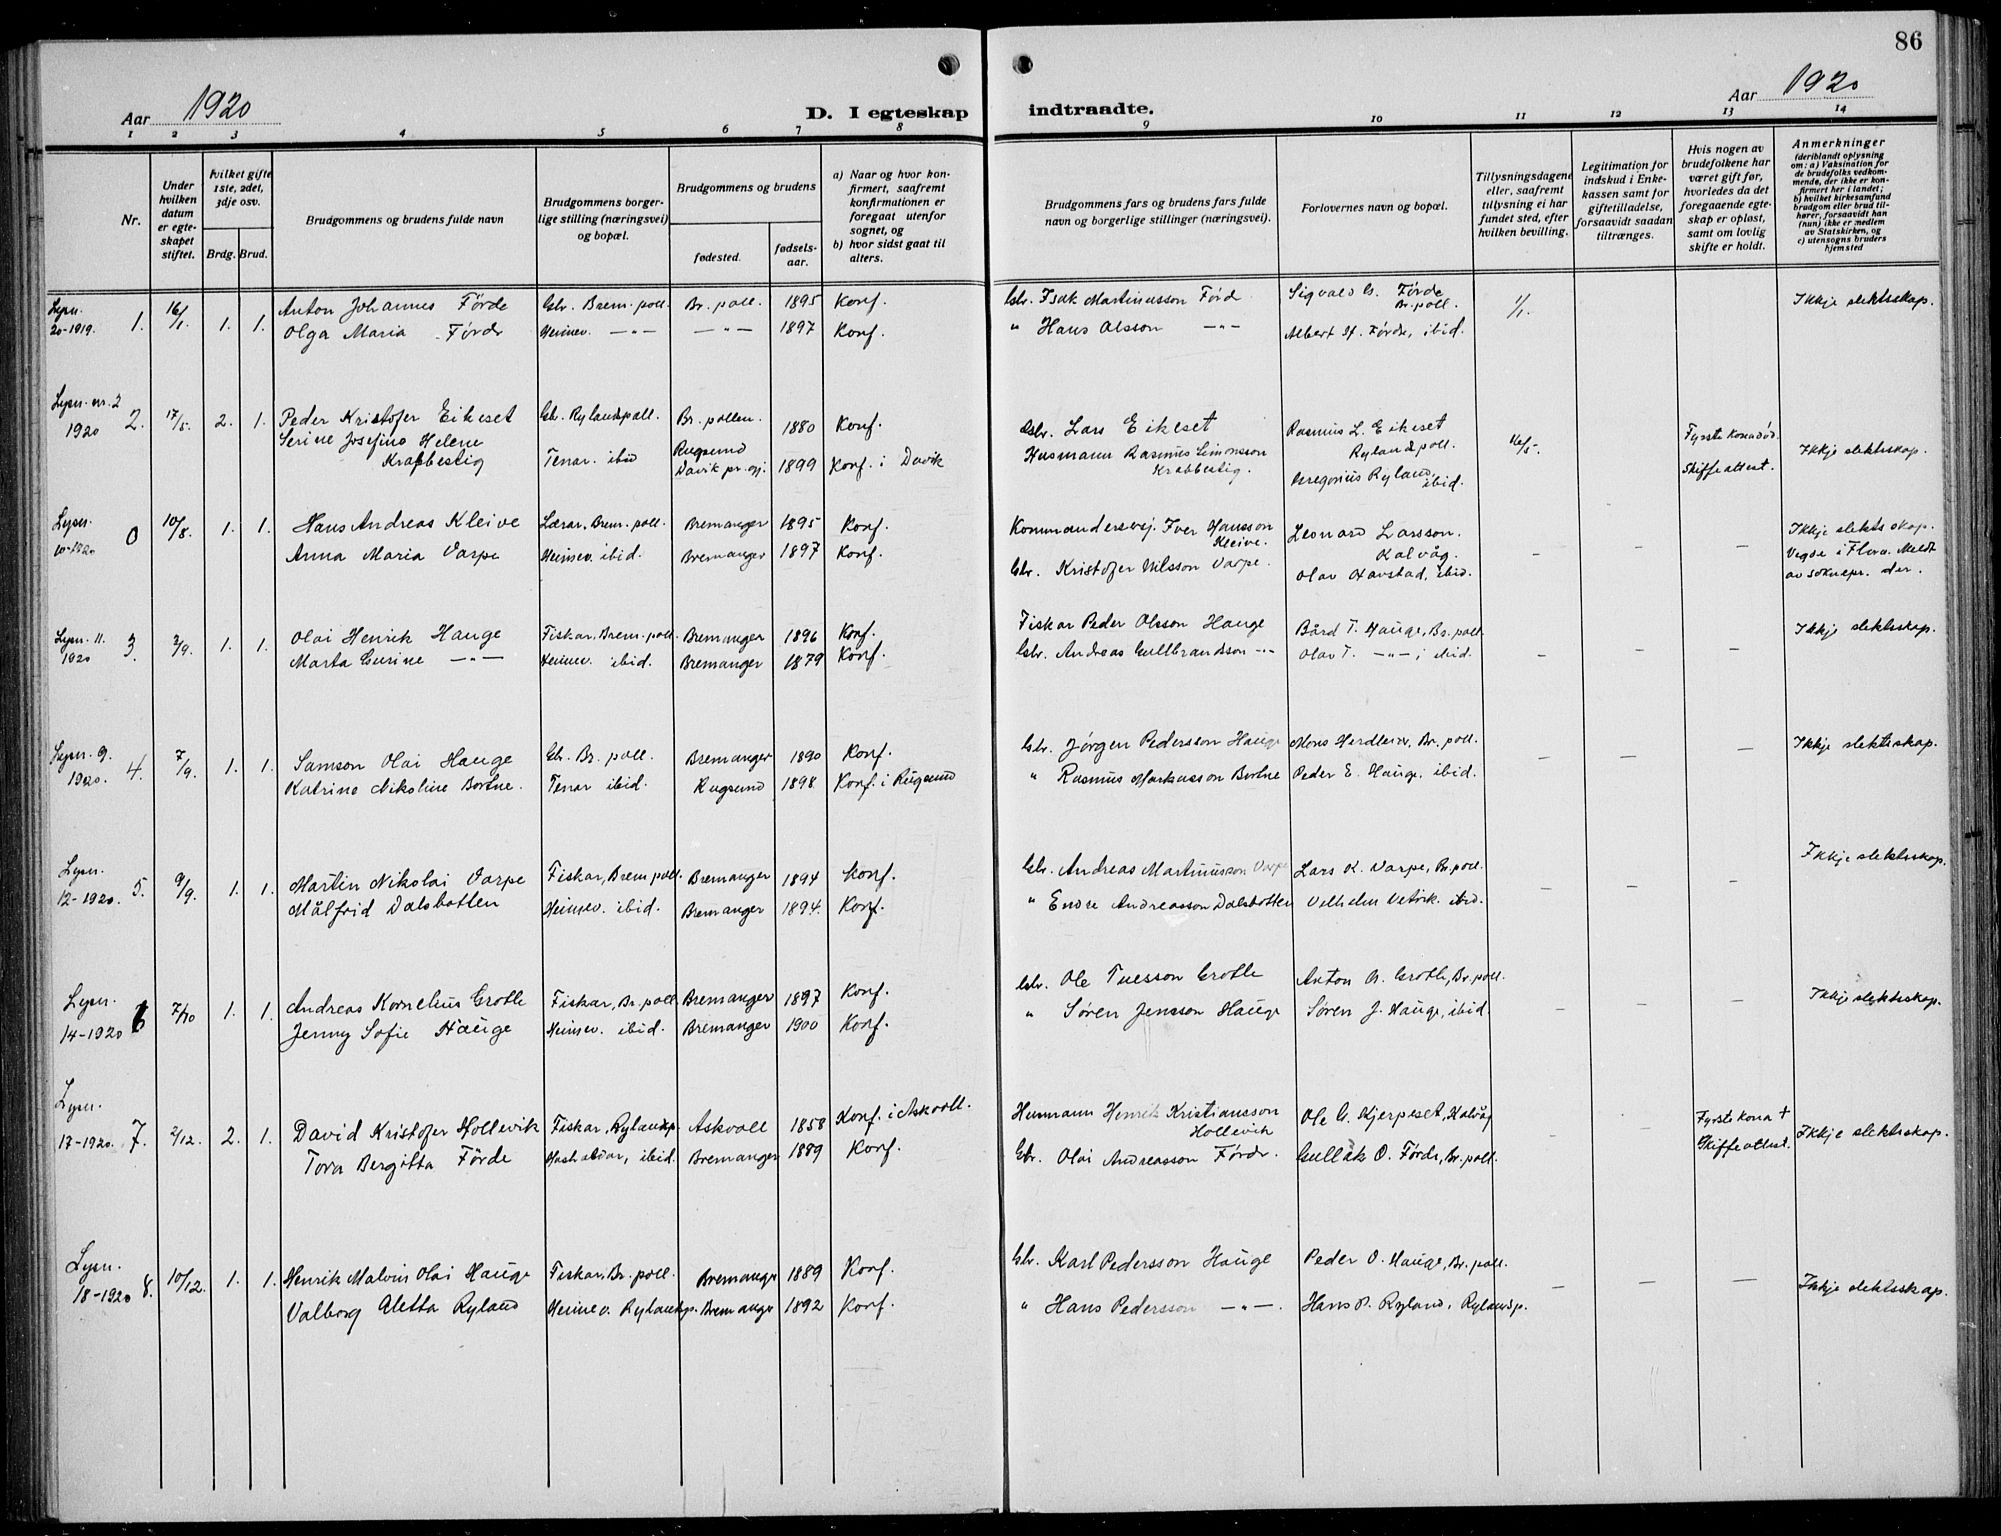 86
Aar 1920
D. I egteskap indtraadte.
Aar 1920
1 2 3 4 5 6 7 8 9 10 11 12 13 14
Nr.
Under hvilken datum er egteskapet stiftet.
hvilket gifte 1ste, 2det, 3dje osv.
Brdg. Brud.
Brudgommens og brudens fulde navn
Brudgommens borgerlige stilling (næringsvei) og bopæl.
Brudgommens og brudens
fødested.
fødselsaar.
a) Naar og hvor konfirmert, saafremt konfirmationen er foregaat utenfor sognet, og
b) hvor sidst gaat til alters.
Brudgommens fars og brudens fars fulde navn og borgerlige stillinger (næringsvei).
Forlovernes navn og bopæl.
Tillysningsdagene eller, saafremt tillysning ei har fundet sted, efter hvilken bevilling.
Legitimation for indskud i Enkekassen samt for giftetilladelse, forsaavidt saadan tiltrænges.
Hvis nogen av brudefolkene har været gift før, hvorledes da det foregaaende egteskap er opløst, samt om lovlig skifte er holdt.
Anmerkninger
(deriblandt oplysning om: a) Vaksination for de brudefolks vedkommende, der ikke er konfirmert her i landet; b) hvilket kirkesamfund brudgom eller brud tilhører, forsaavidt han (hun) ikke er medlem av Statskirken, og c) utensogns bruders hjemsted
Lysn. 20-1919. 1. 16/1 1. 1. Anton Johannes Förde Gbr. Brem.poll. Br. poll. 1895 Konf. Gbr. Isak Martinusson Förd Sigvald G. Förde Br. poll. 1/1. Ikkje slektsskap.
Olga Maria Förde Heimev. —„— —„— 1897 Konf. „ Hans Olsson —„— Albert H. Förde, ibid.
Lysn. nr. 2 1920 2. 17/5. 2. 1. Peder Kristofer Eikeset Gbr. Rylandspoll. Br. pollen. 1880 Konf. Gbr. Lars Eikeset Rasmus L. Eikeset Rylandspoll. 16/5. Fyrste kona död. Skifteattest. Ikkje slektsskap.
Serine Josefine Helene Krabbestig Tenar. ibid Rugsund Davik pr.gj. 1899 Konf. i Davik Husmann Rasmus Simonsson Krabbestig. Gregorius Ryland ibid.
Lysn. 10-1920 0 10/8. 1. 1. Hans Andreas Kleive Lærar, Brem. poll. Bremanger 1895 Konf. Kommandersersj. Iver Hansson Kleive. Leonard Larsson. Kalvåg. – – – Ikkje slektsskap. Vigde i Flora. Meldt av soknepr. der.
Anna Maria Varpe Heimev. ibid. Bremanger 1897 Konf. Gbr. Kristofer Nilsson Varpe. Olav Havstad, ibid.
Lysn. 11. 1920 3. 3/9. 1. 1. Olai Henrik Hauge Fiskar, Brem. poll Bremanger 1896 Konf. Fiskar Peder Olsson Hauge Bård T. Hauge, Br. poll – – – Ikkje slektsskap.
Marta Gurine —„— Heimev. ibid. Bremanger 1879 Konf. Gbr. Andreas Gullbrandsson —„— Olav T. —„— ; ibid.
Lysn. 9. 1920. 4. 7/9. 1. 1. Samson Olai Hauge Gbr. Br. poll. Bremanger 1890 Konf. Gbr. Jørgen Pedersson Hauge Mons Herdleiv, Br. poll. – – – Ikkje slektsskap.
Katrine Nikoline Bortne. Tenar ibid. Rugsund 1898 Konf. i Rugsund „ Rasmus Markusson Bortne Peder E. Hauge. ibid.
Lysn. 12-1920. 5. 9/9. 1. 1. Martin Nikolai Varpe Fiskar, Brem poll. Bremanger 1894 Konf. Gbr. Andreas Martinusson Varpe Lars K. Varpe, Br. poll. – – – Ikkje slektsskap.
Målfrid Dalsbotten Heimev. ibid. Bremanger 1894. Konf. „ Endre Andreasson Dalsbotten Vilhelm Vetvik. ibid.
Lysn. 14-1920 6 7/10 1. 1. Andreas Kornelius Grotle Fiskar, Br. poll. Bremanger 1897 Konf. Gbr. Ole Tuesson Grotle Anton O. Grotle, Br. poll. – – Ikkje slektsskap.
Jenny Sofie Hauge Heimev. ibid. Bremanger 1900 Konf. „ Søren Jensson Hauge Søren J. Hauge, ibid.
Lysn. 17-1920. 7. 2/12. 2. 1. David Kristofer Hollevik Fiskar, Rylandsp. Askvoll 1858 Konf. i Askvoll. Husmann Henrik Kristiansson Hollevik Ole G. Kjerpeset, Kalvåg – – Fyrste kona † Skifteattest. Ikkje slektsskap.
Tora Bergitta Förde ibid. Bremanger 1889 Konf. Gbr. Olai Andreasson Förde. Gullåk O. Förde, Br. poll.
Lysn. 18-1920 8. 10/12. 1. 1. Henrik Malvin Olai Hauge Fiskar, Br. poll. Bremanger 1889 Konf. Gbr. Karl Pedersson Hauge Peder O. Hauge, Br. poll. – – – Ikkje slektsskap.
Valborg Aletta Ryland Heimev. Rylandsp. Bremanger 1892 Konf. „ Hans Pedersson —„—. Hans P. Ryland, Rylandsp.